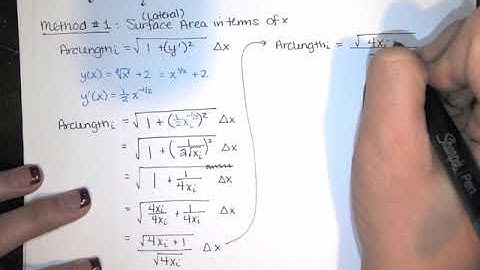 (Lateral)
Method #1: Surface Area in terms of x
Arclengthᵢ = √(1 + (y')²) Δx
y(x) = √x + 2 = x^(1/2) + 2
y'(x) = ½ x^(-1/2)
Arclengthᵢ = √(1 + (½xᵢ^(-1/2))²) Δx
= √(1 + (1/(2√xᵢ))²) Δx
= √(1 + 1/(4xᵢ)) Δx
= √(4xᵢ/(4xᵢ) + 1/(4xᵢ)) Δx
= √(4xᵢ + 1)/√(4xᵢ) Δx
Arclengthᵢ = √(4xᵢ
Sharpie Pen